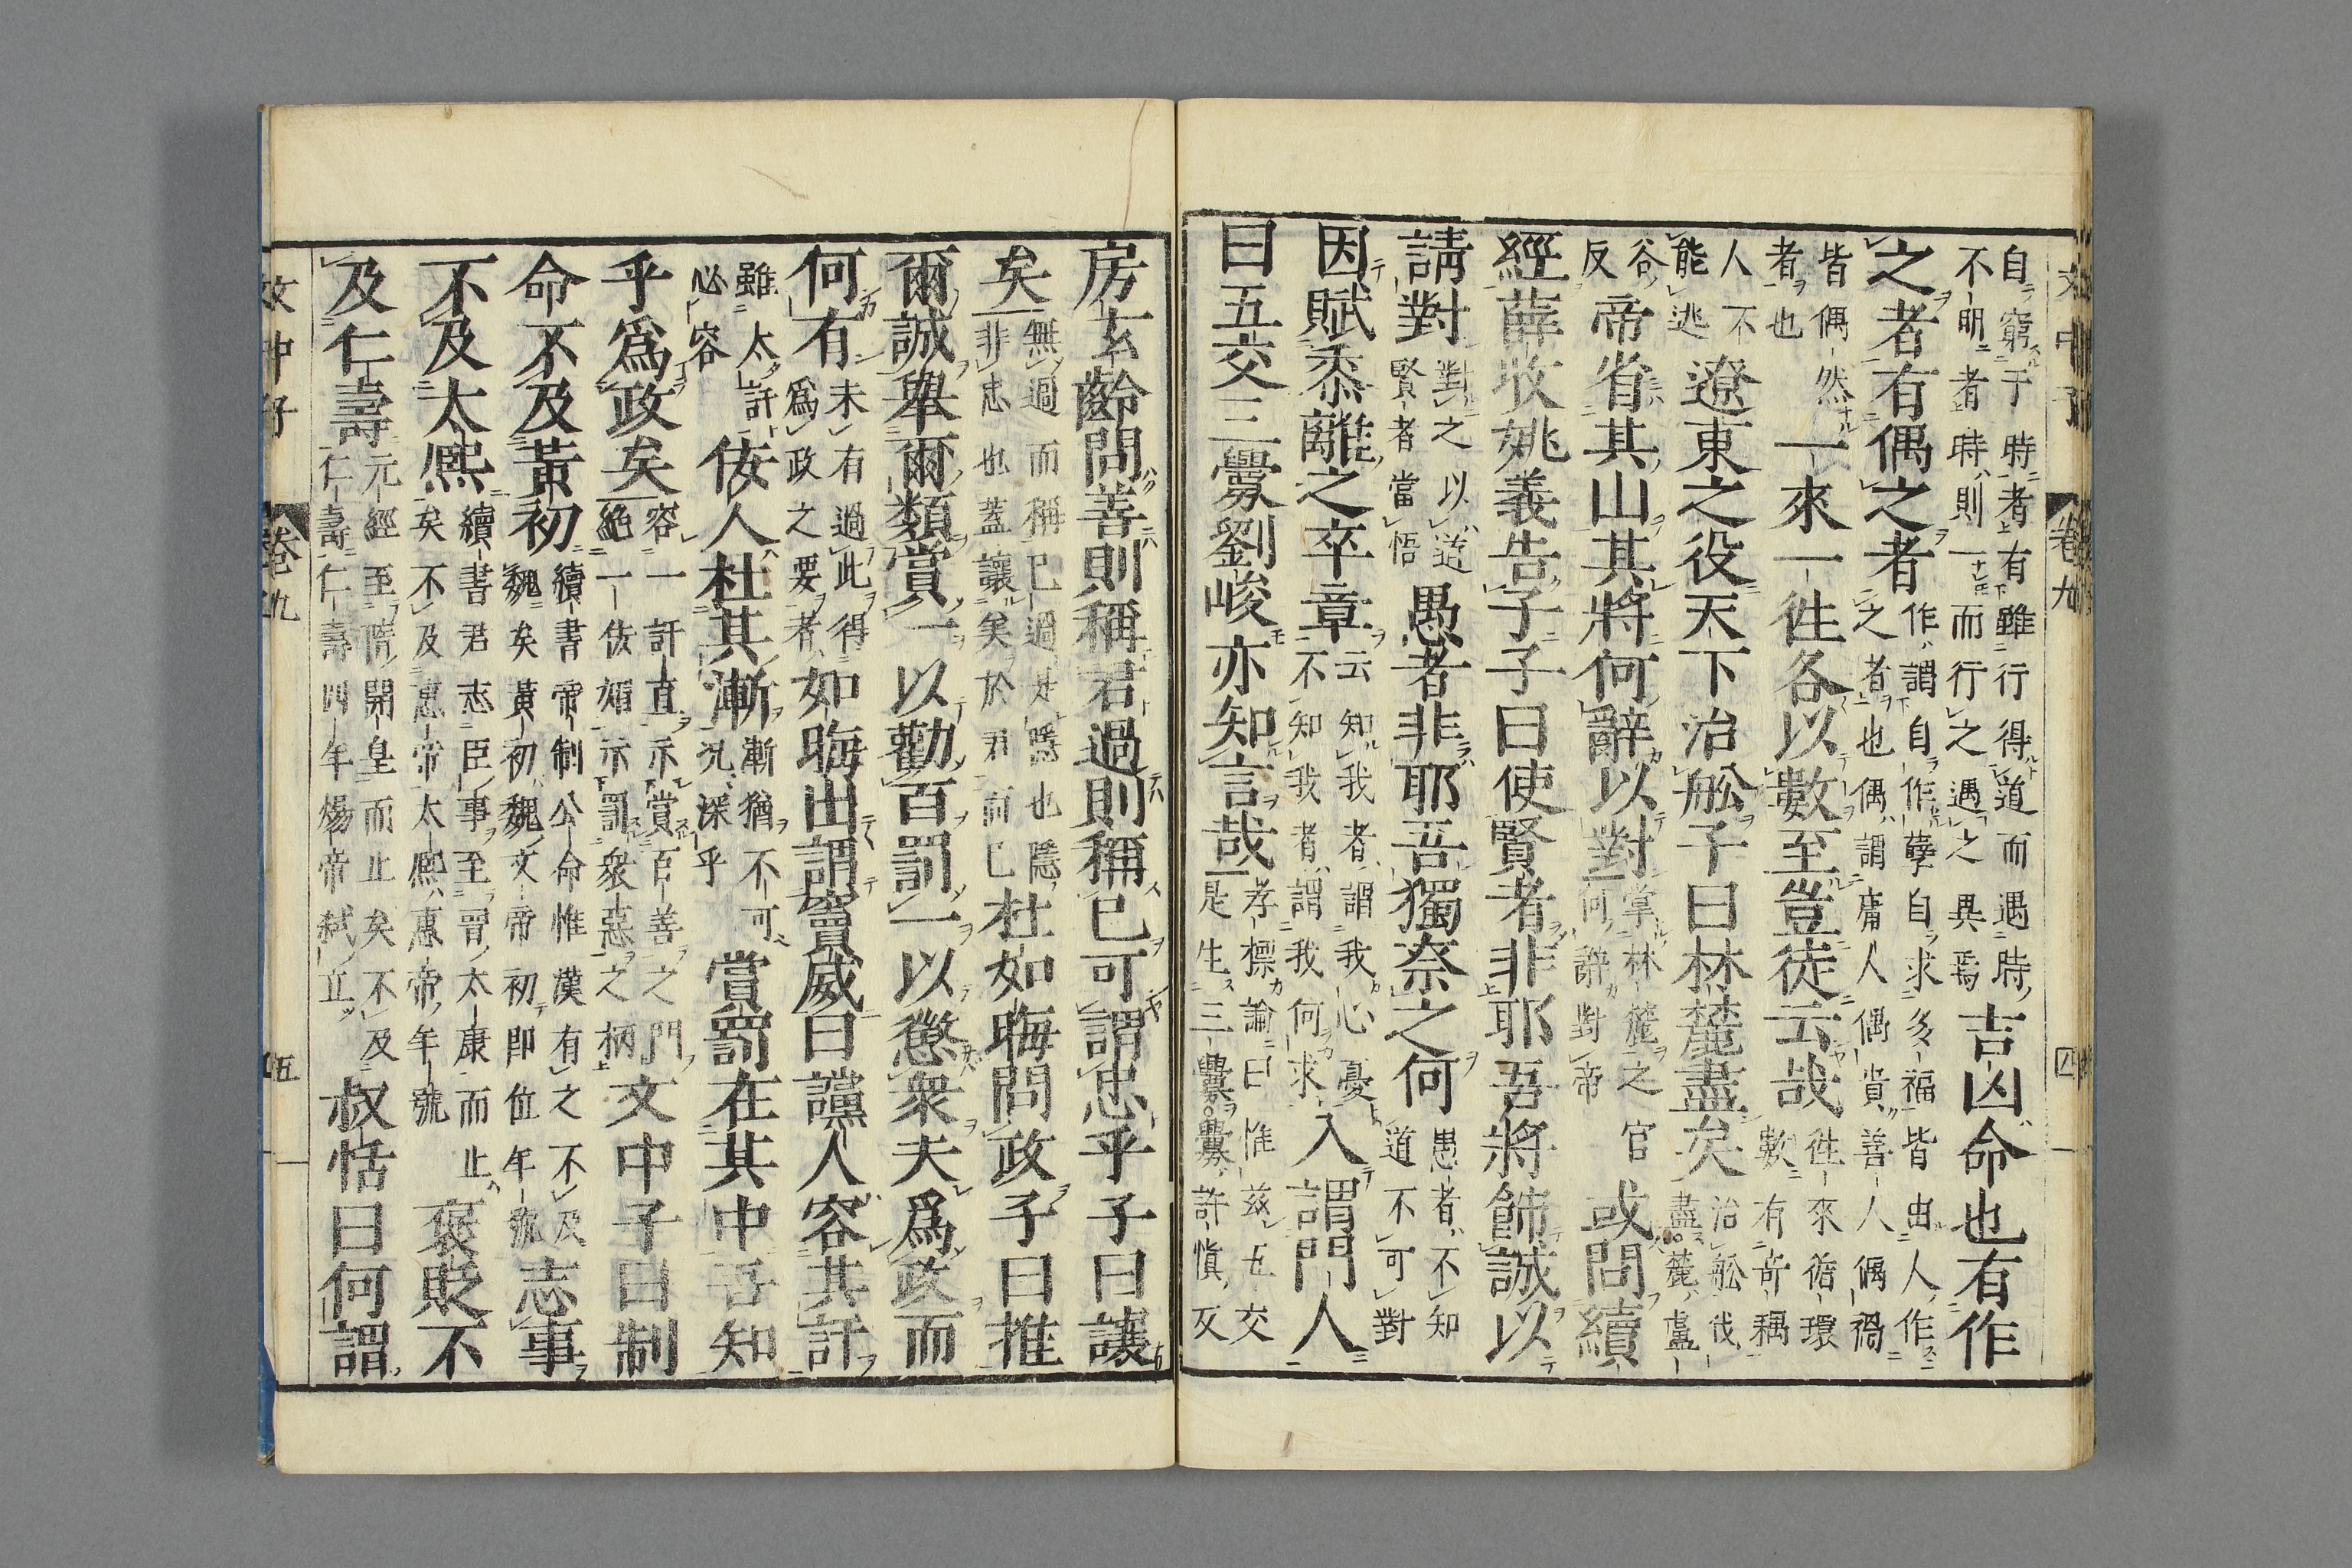 文中子 卷九 四
自窮于時者有雖行得道而遇時
不明者時則一而行之遇之異焉
吉凶命也有作
之者有偶之者
作謂自作孽自求多福皆由人作
之者也偶謂庸人偶貴善人偶禍
皆偶然
者也
一來一徃各以數至豈徒云哉
徃來循環
數有奇耦
人不
能逃
遼東之役天下治舩子曰林麓盡矣
治舩伐
盡麓盧
谷
反
帝省其山其將何辭以對
掌林麓之官
何辭對帝
或問續
經薛收姚義告子子曰使賢者非耶吾將飾誠以
請對
對之以道
賢者當悟
愚者非耶吾獨奈之何
愚者不知
道不可對
因賦黍離之卒章
云知我者謂我心憂
不知我者謂我何求
入謂門人
曰五交三釁劉峻亦知言哉
孝標論曰惟兹五交
是生三釁釁許愼反
房玄齡問善則稱君過則稱已可謂忠乎子曰讓
矣
無過而稱已過是隱也隱
非忠也蓋讓矣於君前已
杜如晦問政子曰推
爾誠舉爾類賞一以勸百罰一以懲衆夫爲政而
何有
未有過此得
爲政之要者
如晦出謂竇威曰讜人容其訐
雖太訐
必容
佞人杜其漸
漸猶不可
况深乎
賞罰在其中吾知
乎爲政矣
容一訐直示賞百善之門
絶一佞媚示罰衆惡之柄
文中子曰制
命不及黃初
續書帝制公命惟漢有之不及
魏矣黃初魏文帝初即位年號
志事
不及太熙
續書君志臣事至晉太康而止
矣不及惠帝太熙惠帝年號
褒貶不
及仁壽
元經至隋開皇而止矣不及
仁壽仁壽四年煬帝弑立
叔恬曰何謂
文中子 卷九 五